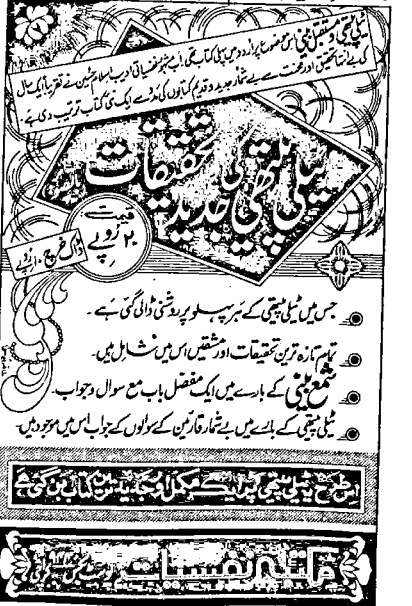 ٹیلی پیتھی و مستقبل بینی اس موضوع پر اردو میں پہلی کتاب تھی اب مشہور نفسیاتی ادیب اسلام حسین نے تقریباً ایک سال
کی بے انتہا تحقیق اور محنت سے بے شمار جدید و قدیم کتابوں کی مدد سے ایک نئی کتاب ترتیب دی ہے۔
ٹیلی پیتھی کی جدید تحقیقات
قیمت
۲۰ روپے
ڈاک خرچ
جس میں ٹیلی پیتھی کے ہر پہلو پر روشنی ڈالی گئی ہے۔
تمام تازہ ترین تحقیقات اور مشقیں اس میں شامل ہیں۔
شمع بینی کے بارے میں ایک مفصل باب مع سوال و جواب۔
ٹیلی پیتھی کے بارے میں بے شمار قارئین کے سوالوں کے جواب اس میں موجود ہیں۔
اس طرح یہ ٹیلی پیتھی پر ایک مکمل و جدید ترین کتاب بن گئی ہے
مکتبہ نفسیات